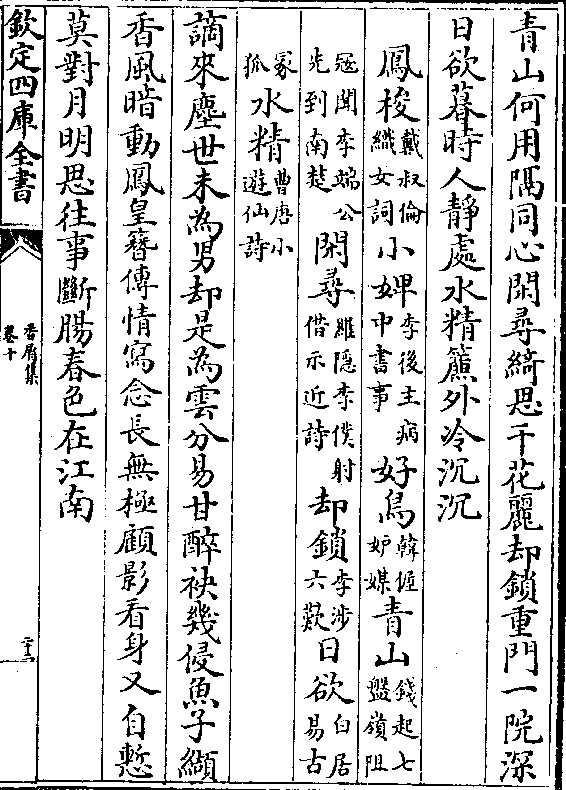 青山何用隔同心閑尋綺思千花麗却鎖重門一院深
日欲暮時人靜處水精簾外冷沉沉
鳳梭戴叔倫織女詞小婢李後主病中書事好鳥韓偓妒媒青山錢起七盤嶺阻
寇聞李端公先到南楚閑尋羅隱李僕射借示近詩却鎖李涉六歎日欲白居易古
冢狐水精曹唐小遊仙詩
謫來塵世未為男却是為雲分易甘醉袂幾侵魚子纈
香風暗動鳳皇簪傳情寫念長無極顧影看身又自慙
莫對月明思往事斷腸春色在江南
欽定四庫全書
香屑集
卷十
二十二